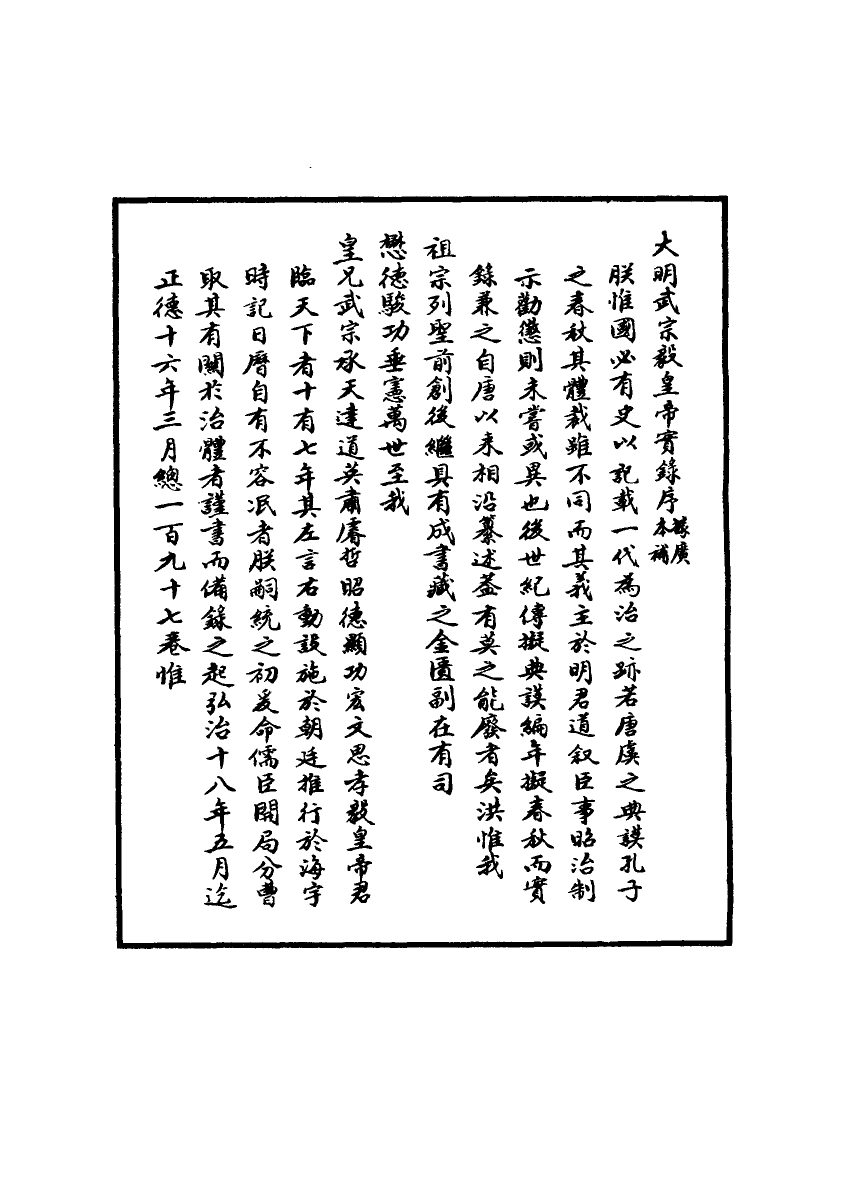 大明武宗毅皇帝實錄序據廣本補
朕惟國必有史以記載一代為治之跡若唐虞之典謨孔子
之春秋其體裁雖不同而其義主於明君道叙臣事昭治制
示勸懲則未嘗或異也後世紀傳擬典謨編年擬春秋而實
錄兼之自唐以來相沿纂述蓋有莫之能廢者矣洪惟我
祖宗列聖前創後繼具有成書藏之金匱副在有司
懋德駿功垂憲萬世至我
皇兄武宗承天達道英肅睿哲昭德顯功宏文思孝毅皇帝君
臨天下者十有七年其左言右動設施於朝廷推行於海宇
時記日曆自有不容泯者朕嗣統之初爰命儒臣開局分曹
取其有關於治體者謹書而備錄之起弘治十八年五月迄
正德十六年三月總一百九十七卷惟